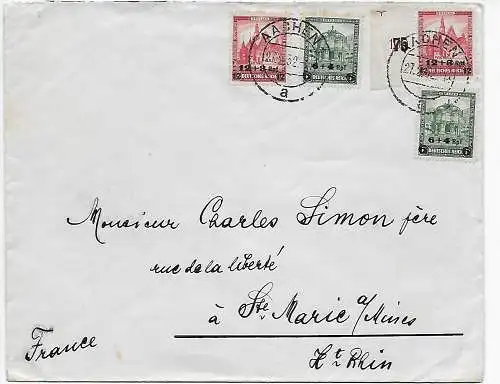 AACHEN
a
75
AACHEN
12+3 Rpf
DEUTSCHES REICH
6+4 Rpf
DEUTSCHES REICH
6+4 Rpf
DEUTSCHES REICH
Monsieur Charles Simon père
rue de la liberté
à Ste Marie a/Mines
France
Ht Rhin